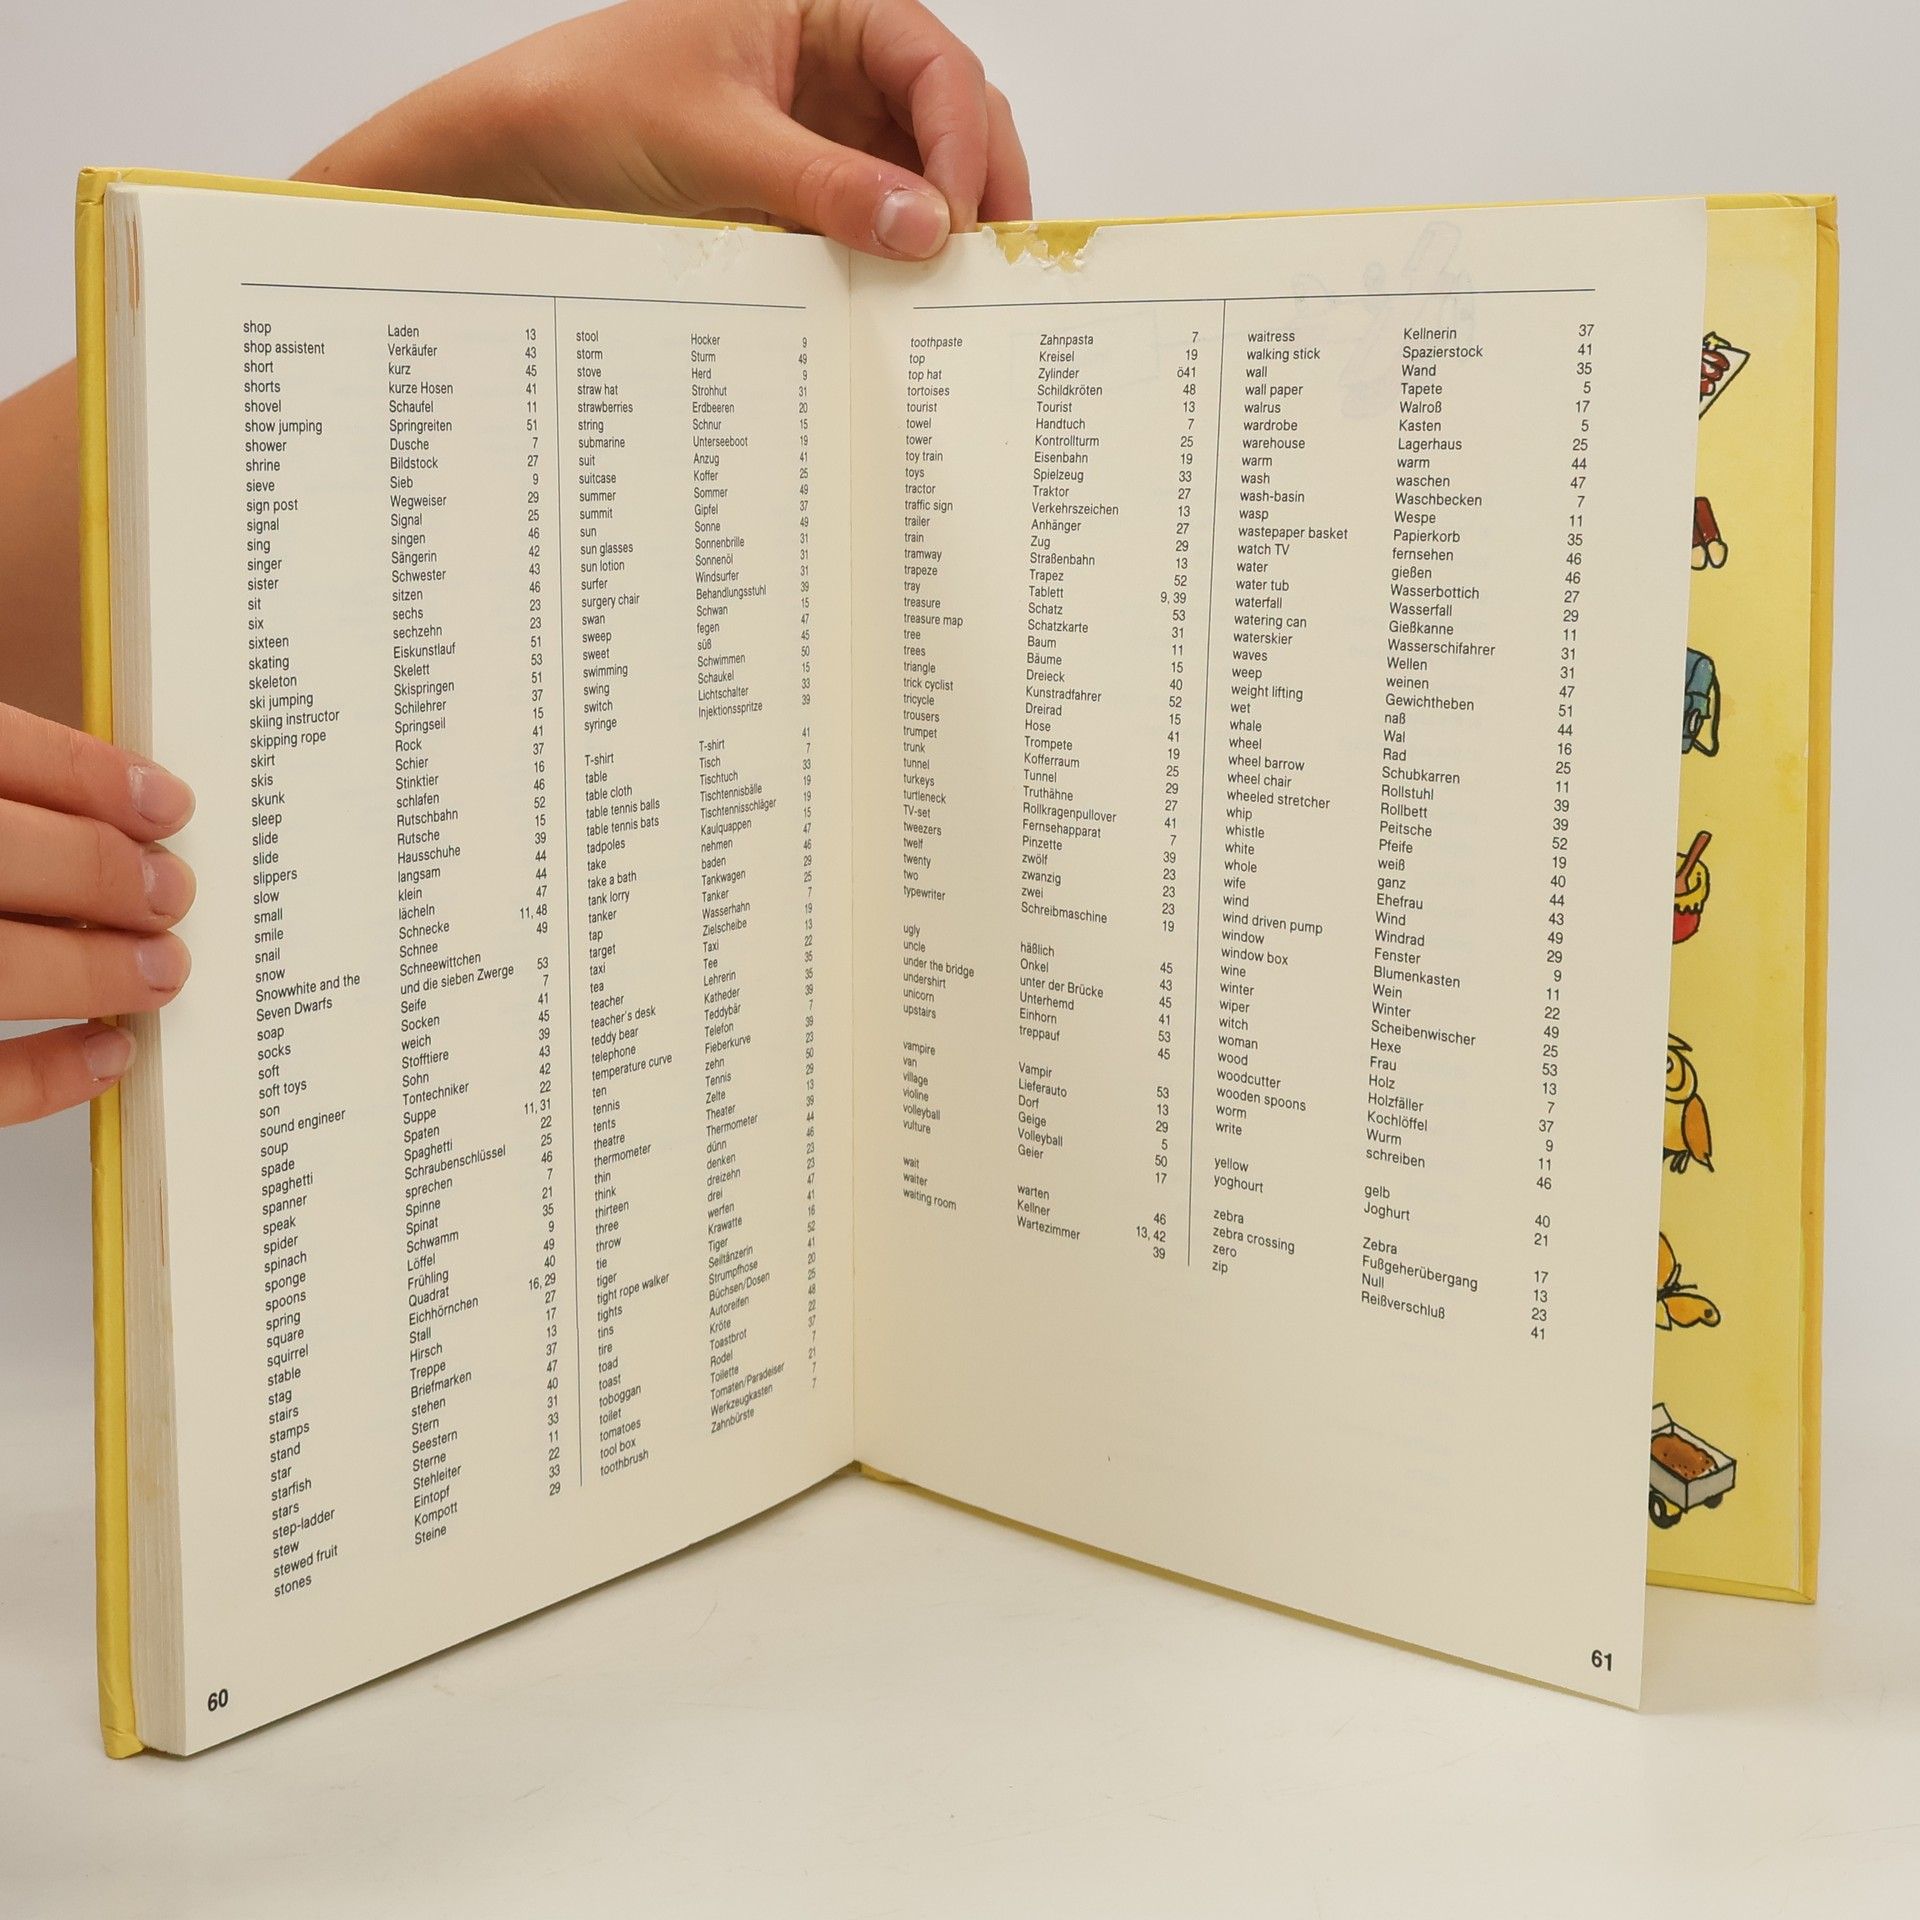 shop Laden 13
shop assistent Verkäufer 43
short kurz 45
shorts kurze Hosen 41
shovel Schaufel 11
show jumping Springreiten 51
shower Dusche 7
shrine Bildstock 27
sieve Sieb 9
sign post Wegweiser 29
signal Signal 25
sing singen 46
singer Sängerin 42
sister Schwester 43
sit sitzen 46
six sechs 23
sixteen sechzehn 23
skating Eiskunstlauf 51
skeleton Skelett 53
ski jumping Skispringen 51
skiing instructor Schilehrer 37
skipping rope Springseil 15
skirt Rock 41
skis Schier 37
skunk Stinktier 16
sleep schlafen 46
slide Rutschbahn 52
slide Rutsche 15
slippers Hausschuhe 39
slow langsam 44
small klein 44
smile lächeln 47
snail Schnecke 11, 48
snow Schnee 49
Snowwhite and the Schneewittchen
Seven Dwarfs und die sieben Zwerge 53
soap Seife 7
socks Socken 41
soft weich 45
soft toys Stofftiere 39
son Sohn 43
sound engineer Tontechniker 42
soup Suppe 22
spade Spaten 11, 31
spaghetti Spaghetti 22
spanner Schraubenschlüssel 25
speak sprechen 46
spider Spinne 7
spinach Spinat 21
sponge Schwamm 35
spoons Löffel 9
spring Frühling 49
square Quadrat 40
squirrel Eichhörnchen 16, 29
stable Stall 27
stag Hirsch 17
stairs Treppe 13
stamps Briefmarken 37
stand stehen 47
star Stern 40
starfish Seestern 31
stars Sterne 33
step-ladder Stehleiter 11
stew Eintopf 22
stewed fruit Kompott 33
stones Steine 29
stool Hocker 9
storm Sturm 49
stove Herd 9
straw hat Strohhut 31
strawberries Erdbeeren 20
string Schnur 15
submarine Unterseeboot 19
suit Anzug 41
suitcase Koffer 25
summer Sommer 49
summit Gipfel 37
sun Sonne 49
sun glasses Sonnenbrille 31
sun lotion Sonnenöl 31
surfer Windsurfer 31
surgery chair Behandlungsstuhl 39
swan Schwan 15
sweep fegen 47
sweet süß 45
swimming Schwimmen 50
swing Schaukel 15
switch Lichtschalter 33
syringe Injektionsspritze 39
T-shirt T-shirt 41
table Tisch 7
table cloth Tischtuch 33
table tennis balls Tischtennisbälle 19
table tennis bats Tischtennisschläger 19
tadpoles Kaulquappen 15
take nehmen 47
take a bath baden 46
tank lorry Tankwagen 29
tanker Tanker 25
tap Wasserhahn 7
target Zielscheibe 19
taxi Taxi 13
tea Tee 22
teacher Lehrerin 35
teacher's desk Katheder 35
teddy bear Teddybär 39
telephone Telefon 7
temperature curve Fieberkurve 39
ten zehn 23
tennis Tennis 50
tents Zelte 29
theatre Theater 13
thermometer Thermometer 39
thin dünn 44
think denken 46
thirteen dreizehn 23
three drei 23
throw werfen 47
tie Krawatte 41
tiger Tiger 16
tight rope walker Seiltänzerin 52
tights Strumpfhose 41
tins Büchsen/Dosen 20
tire Autoreifen 25
toad Kröte 48
toast Toastbrot 22
toboggan Rodel 37
toilet Toilette 7
tomatoes Tomaten/Paradeiser 21
tool box Werkzeugkasten 7
toothbrush Zahnbürste 7
60
toothpaste Zahnpasta 7
top Kreisel 19
top hat Zylinder ö41
tortoises Schildkröten 48
tourist Tourist 13
towel Handtuch 7
tower Kontrollturm 25
toy train Eisenbahn 19
toys Spielzeug 33
tractor Traktor 27
traffic sign Verkehrszeichen 13
trailer Anhänger 27
train Zug 29
tramway Straßenbahn 13
trapeze Trapez 52
tray Tablett 9, 39
treasure Schatz 53
treasure map Schatzkarte 31
tree Baum 11
trees Bäume 15
triangle Dreieck 40
trick cyclist Kunstradfahrer 52
tricycle Dreirad 15
trousers Hose 41
trumpet Trompete 19
trunk Kofferraum 25
tunnel Tunnel 29
turkeys Truthähne 27
turtleneck Rollkragenpullover 41
TV-set Fernsehapparat 7
tweezers Pinzette 39
twelf zwölf 23
twenty zwanzig 23
two zwei 23
typewriter Schreibmaschine 19
ugly häßlich 45
uncle Onkel 43
under the bridge unter der Brücke 45
undershirt Unterhemd 41
unicorn Einhorn 53
upstairs treppauf 45
vampire Vampir 53
van Lieferauto 13
village Dorf 29
violine Geige 5
volleyball Volleyball 50
vulture Geier 17
wait warten 46
waiter Kellner 13, 42
waiting room Wartezimmer 39
waitress Kellnerin 37
walking stick Spazierstock 41
wall Wand 35
wall paper Tapete 5
walrus Walroß 17
wardrobe Kasten 5
warehouse Lagerhaus 25
warm warm 44
wash waschen 47
wash-basin Waschbecken 7
wasp Wespe 11
wastepaper basket Papierkorb 35
watch TV fernsehen 46
water gießen 46
water tub Wasserbottich 27
waterfall Wasserfall 29
watering can Gießkanne 11
waterskier Wasserschifahrer 31
waves Wellen 31
weep weinen 47
weight lifting Gewichtheben 51
wet naß 44
whale Wal 16
wheel Rad 25
wheel barrow Schubkarren 11
wheel chair Rollstuhl 39
wheeled stretcher Rollbett 39
whip Peitsche 52
whistle Pfeife 19
white weiß 40
whole ganz 44
wife Ehefrau 43
wind Wind 49
wind driven pump Windrad 29
window Fenster 9
window box Blumenkasten 11
wine Wein 22
winter Winter 49
wiper Scheibenwischer 25
witch Hexe 53
woman Frau 13
wood Holz 7
woodcutter Holzfäller 37
wooden spoons Kochlöffel 9
worm Wurm 11
write schreiben 46
yellow gelb 40
yoghourt Joghurt 21
zebra Zebra 17
zebra crossing Fußgeherübergang 13
zero Null 23
zip Reißverschluß 41
61